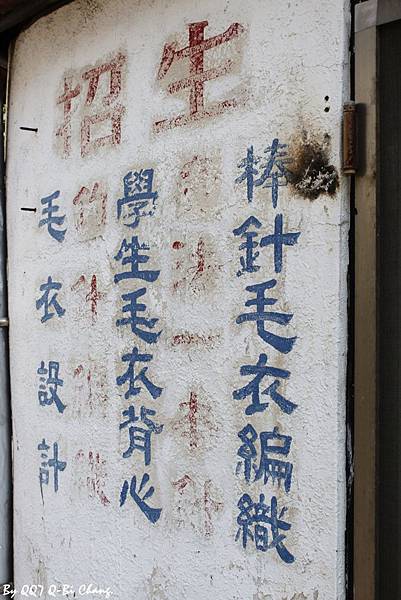 招生
棒針毛衣編織
學生毛衣背心
鈎針編織
毛衣設計
By QQ7 Q-Bi Chang